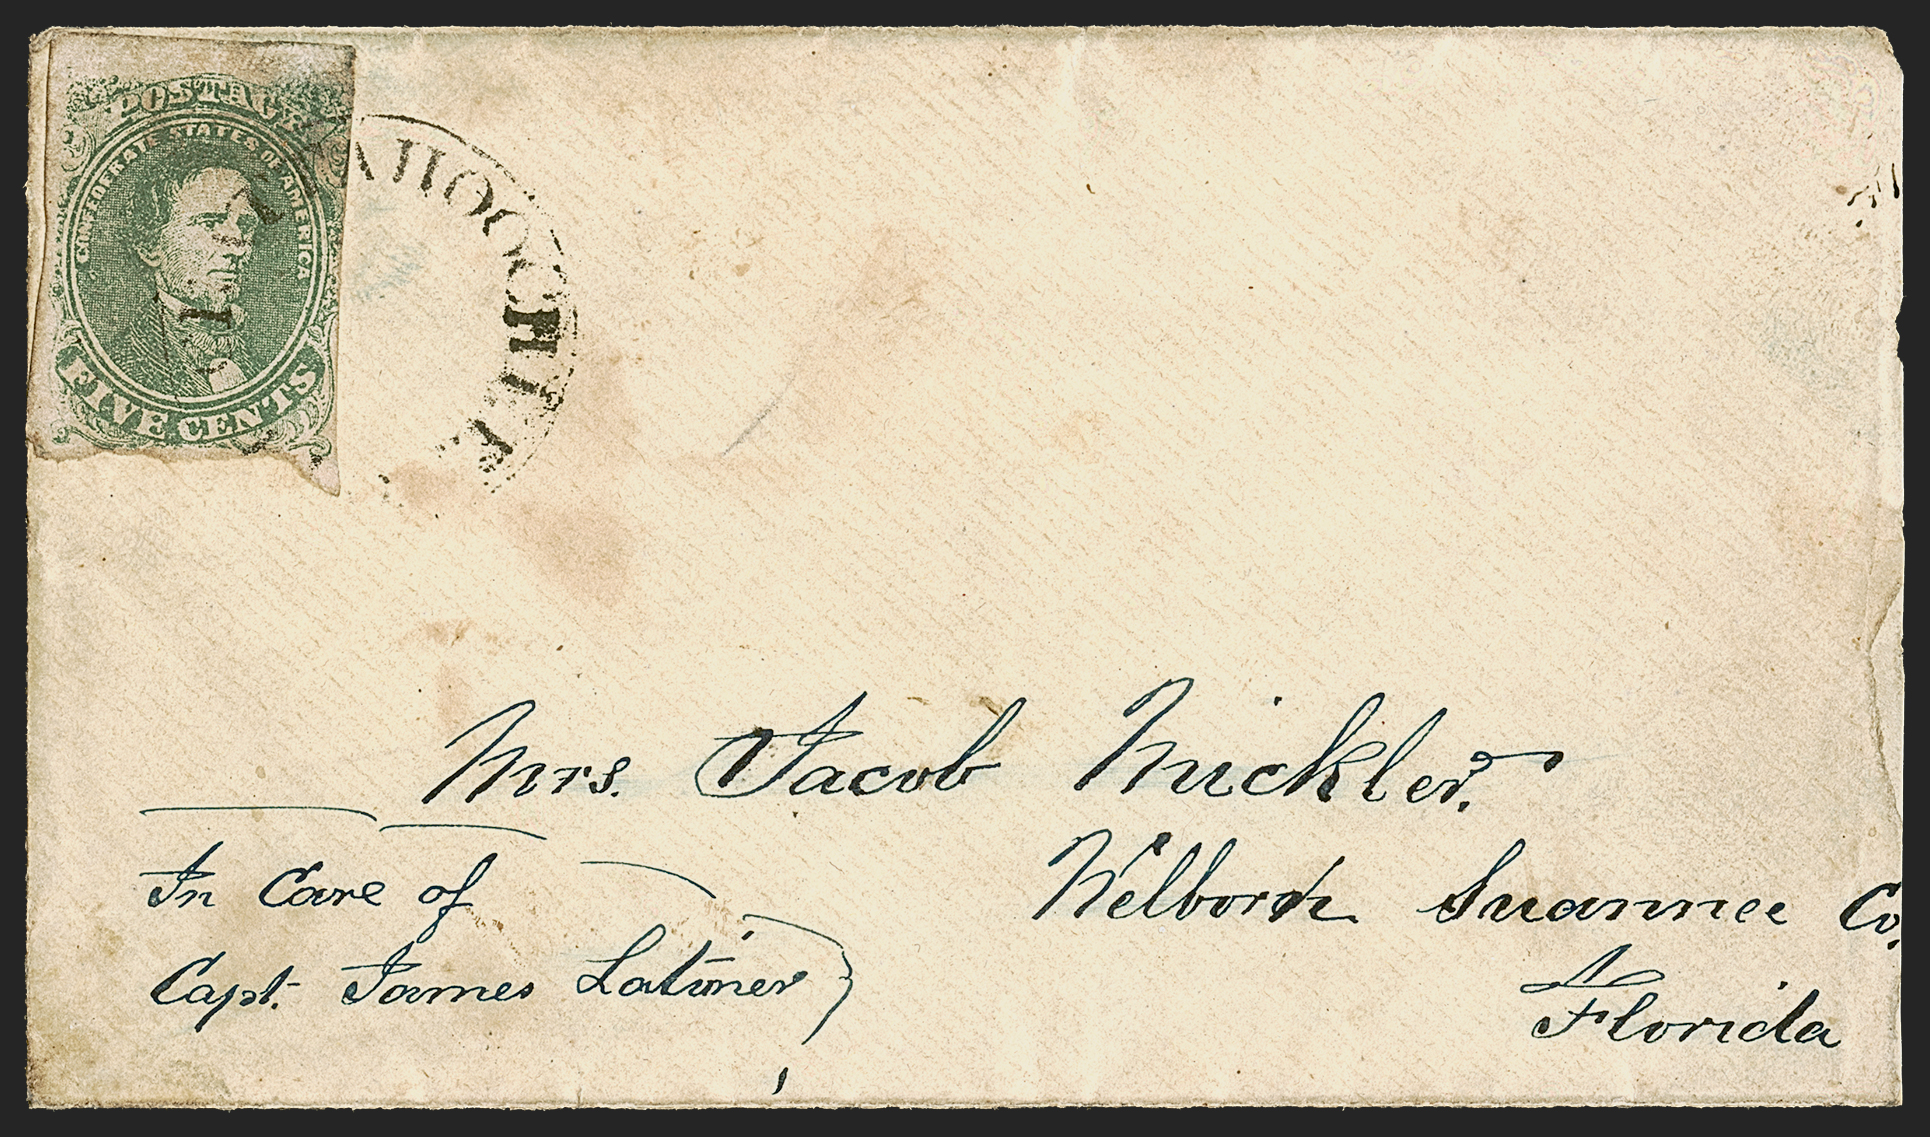 POSTAGE
CONFEDERATE STATES OF AMERICA
FIVE CENTS
Mrs. Jacob Mickler.
In Care of
Capt. James Latimer
Welborn Suannee Co.
Florida